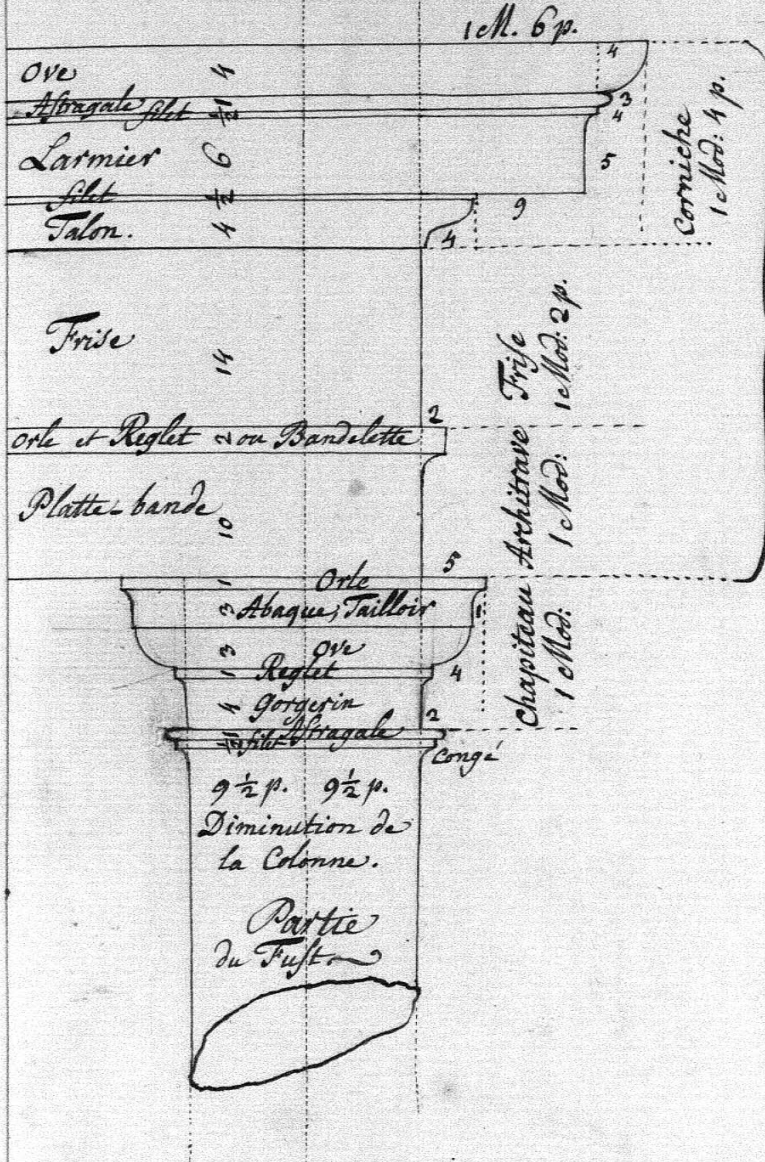 1 M. 6 p.
Ove 4 4
Astragale 1 3
filet ½ 4
Larmier 6 5
filet ½ 9
Talon. 4 4
Corniche
1 Mod: 4 p.
Frise 14
Frise
1 Mod: 2 p.
2
Orle et Reglet 2 ou Bandelette
Platte-bande 10
Architrave
1 Mod:
5
1 Orle
3 Abaque, Tailloir 1
3 Ove
1 Reglet 4
4 Gorgerin 2
1 Astragale
½ filet
Congé
Chapiteau
1 Mod:
9 ½ p. 9 ½ p.
Diminution de
la Colonne.
Partie
du Fust